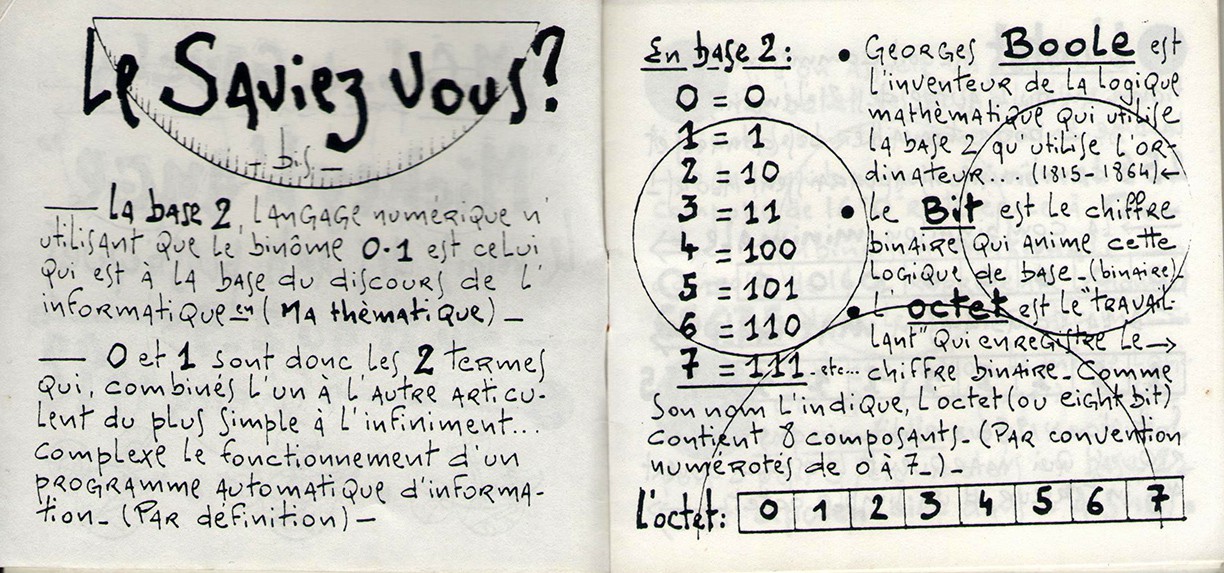 Le Saviez vous?
- bis -
— la base 2, langage numérique n'
utilisant que le binôme 0.1 est celui
qui est à la base du discours de l'
informatique en (Ma thèmatique) —
— 0 et 1 sont donc les 2 termes
qui, combinés l'un à l'autre articu-
lent du plus simple à l'infiniment...
complexe le fonctionnement d'un
programme automatique d'informa-
tion - (Par définition) —
En base 2:
0 = 0
1 = 1
2 = 10
3 = 11
4 = 100
5 = 101
6 = 110
7 = 111 - etc...
• Georges Boole est
l'inventeur de la logique
mathèmatique qui utilise
la base 2 qu'utilise l'or-
dinateur... (1815-1864)←
• Le Bit est le chiffre
binaire qui anime cette
logique de base - (binaire)-
• L'octet est le "travail-
lant" qui enregistre le →
chiffre binaire - Comme
son nom l'indique, l'octet (ou eight bit)
contient 8 composants - (Par convention
numérotés de 0 à 7 -) -
l'octet: 0 1 2 3 4 5 6 7